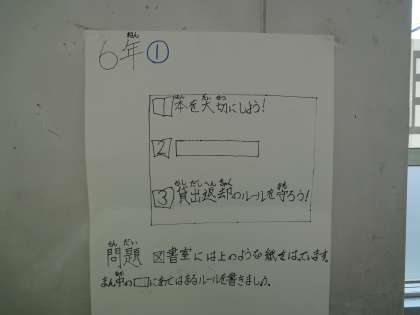 6年 ①
1 本を大切にしよう!
2
3 貸出返却のルールを守ろう!
問題 図書室には上のような紙をはっています。
まん中の□にあてはまるルールを書きましょう。